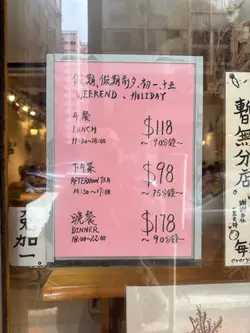 假期、假期前夕、初一、十五
WEEKEND、HOLIDAY
午餐
LUNCH
11:30~14:30
$118
~90分鐘~
下午茶
AFTERNOON TEA
14:30~17:00
$98
~75分鐘~
晚餐
DINNER
18:00~22:00
$178
~90分鐘~
加一
暫無分店
every